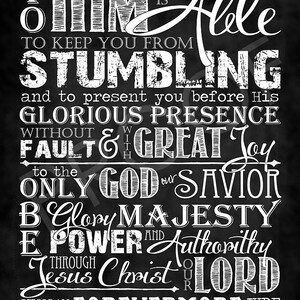 TO HIM is Able
TO KEEP YOU FROM
STUMBLING
and to present you before His
GLORIOUS PRESENCE
WITHOUT FAULT & WITH GREAT Joy
to the ONLY GOD our SAVIOR
BE Glory MAJESTY
POWER AND Authorithy
THROUGH Jesus Christ OUR LORD
FOREVERMORE